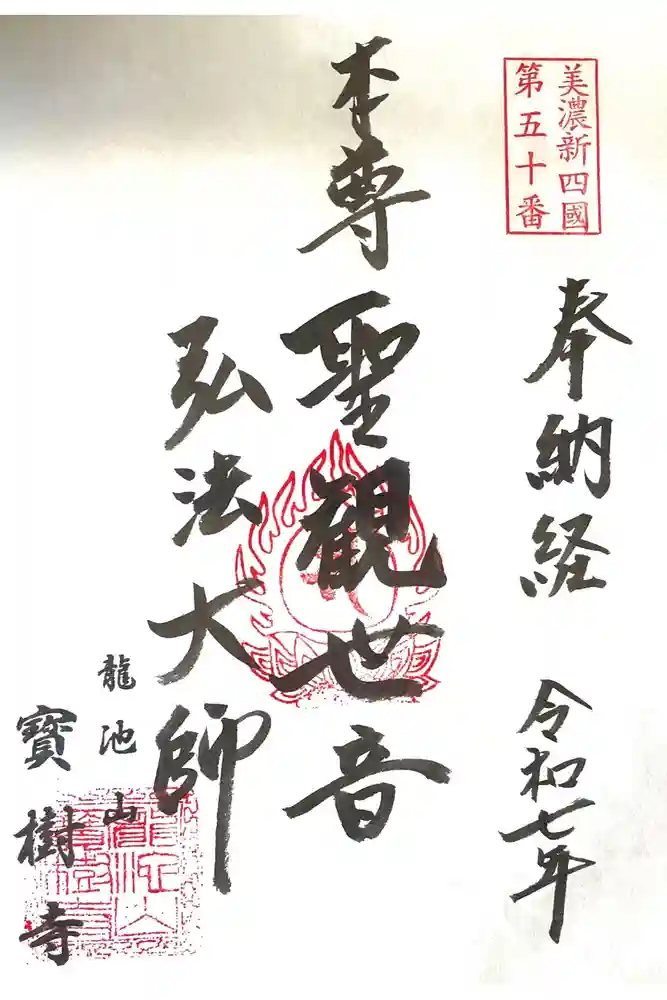 美濃新四國
第五十番
奉納経
令和七年
本尊聖観世音
弘法大師
龍池山
寳樹寺